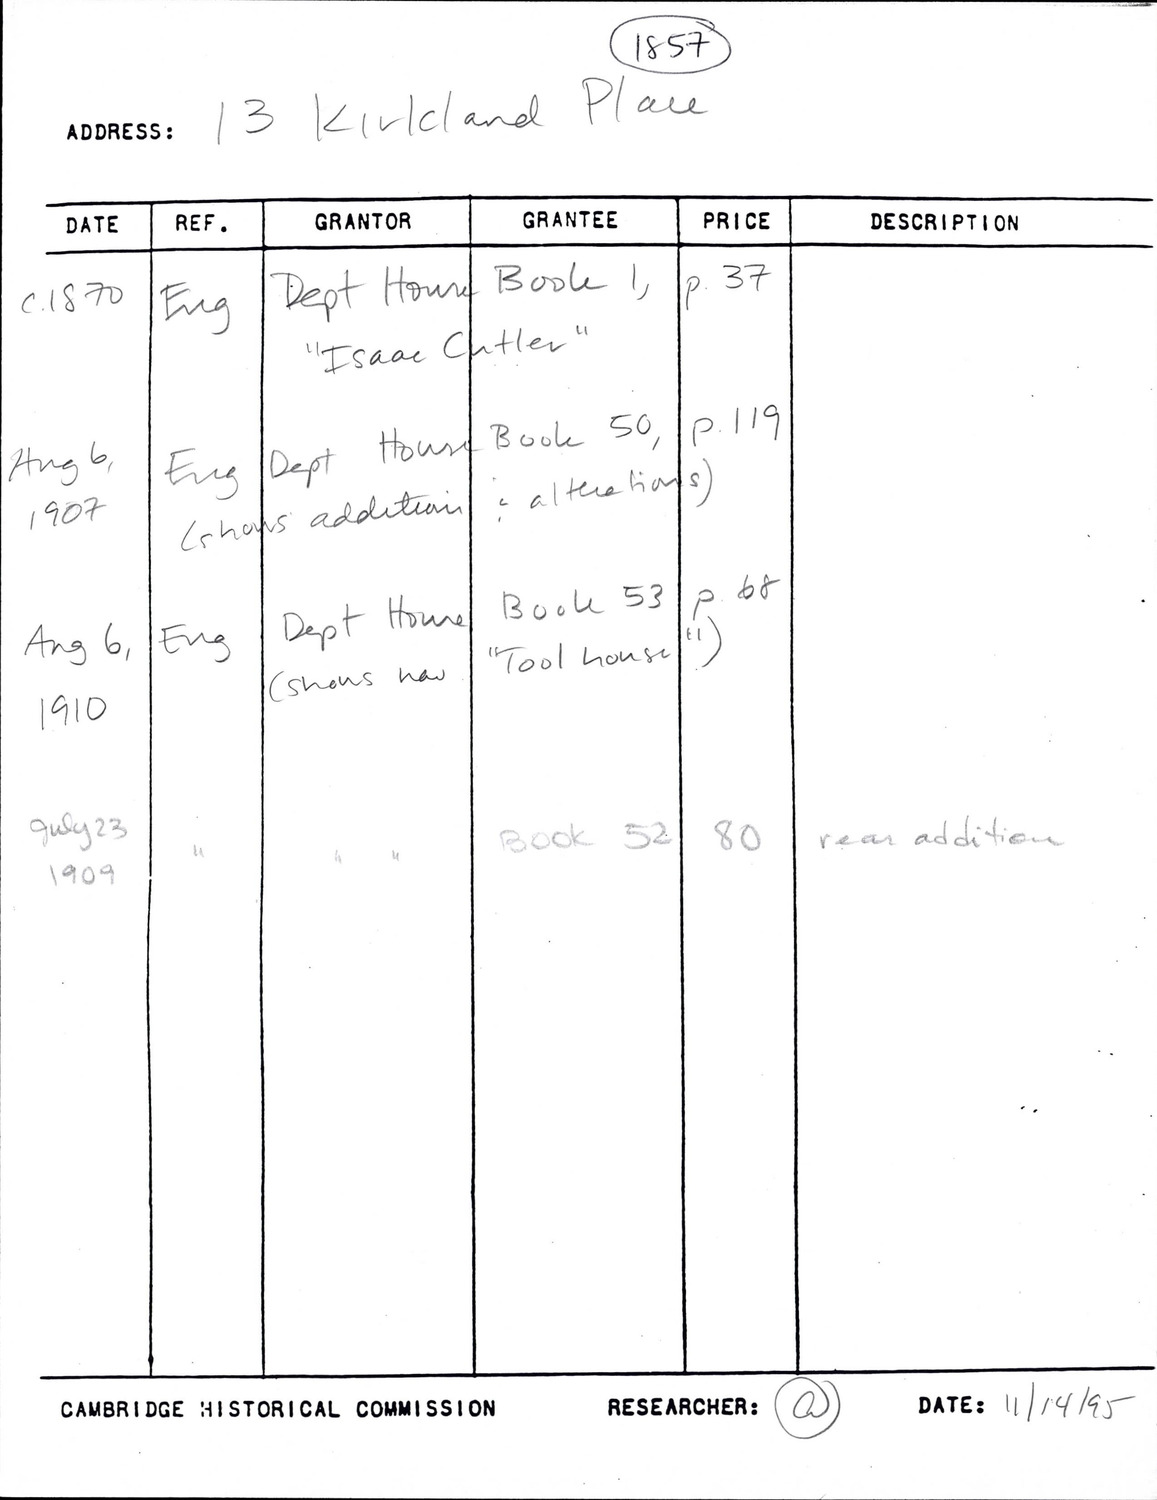 1857
ADDRESS: 13 Kirkland Place
DATE REF. GRANTOR GRANTEE PRICE DESCRIPTION
c.1870 Eng Dept House Book 1, p. 37
"Isaac Cutler"
Aug 6, Eng Dept House Book 50, p. 119
1907 (shows addition & alterations)
Aug 6, Eng Dept House Book 53 p. 68
1910 (shows new "Tool house")
July 23 " " " Book 52 80 rear addition
1909
CAMBRIDGE HISTORICAL COMMISSION RESEARCHER: DATE: 11/14/95